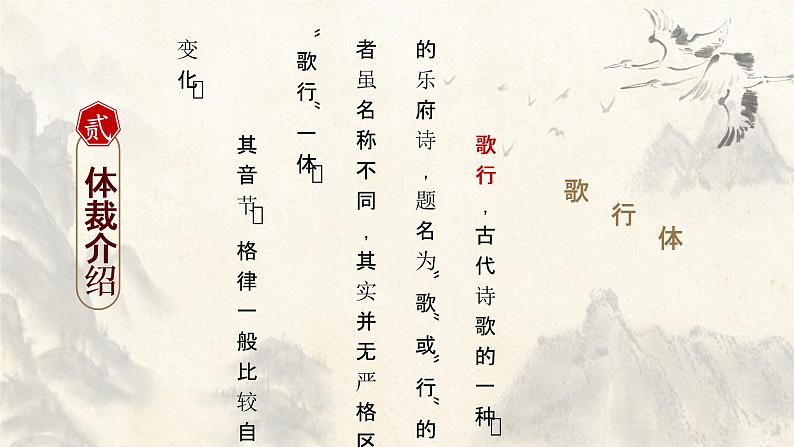 歌行体
歌行，古代诗歌的一种□
的乐府诗，题名为“歌”或“行”的
者虽名称不同，其实并无严格区
“歌行”一体□
其音节□格律一般比较自
变化□
贰
体裁介绍